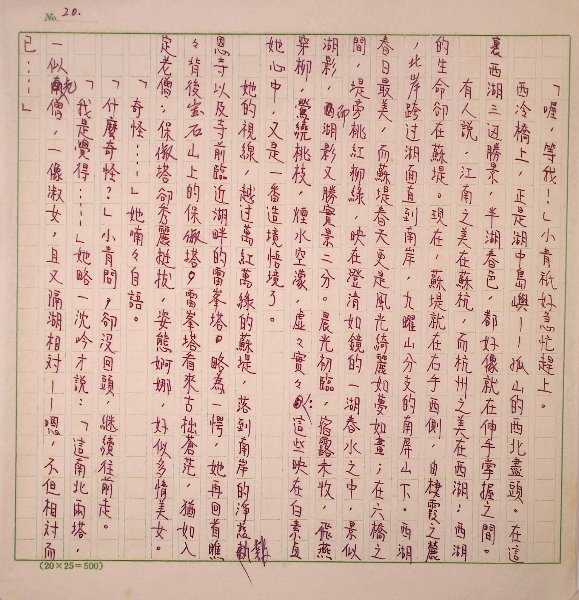 No. 20.
「喔，等我！」小青祇好急忙趕上。
西泠橋上，正是湖中島嶼——孤山的西北盡頭。在這
裏西湖三面勝景，半湖春色，都好像就在伸手掌握之間。
有人說，江南之美在蘇杭，而杭州之美在西湖；西湖
的生命卻在蘇堤。現在，蘇堤就在右手西側，由棲霞之麓
，北岸跨過湖面直到南岸，九曜山分支的南屏山下。西湖
春日最美，而蘇堤春天更是風光綺麗如夢如畫；在六橋之
間，堤旁桃紅柳綠，映在澄清如鏡的一湖春水之中，景似
湖影，而湖影又勝實景二分。晨光初臨，宿露未收，飛燕
穿柳，鶯繞桃枝，煙水空濛，虛々實々，這些映在白素貞
她心中，又是一番造境悟境了。
她的視線，越過萬紅萬綠的蘇堤，落到南岸的淨慈報
恩寺以及寺前臨近湖畔的雷峯塔，略為一愕，她再回首瞧
々背後寶石山上的保俶塔，雷峯塔看來古拙蒼茫，猶如入
定老僧；保俶塔卻秀麗挺拔，姿態婀娜，好似多情美女。
「奇怪……」她喃々自語。
「什麼奇怪？」小青問，卻沒回頭，繼續往前走。
「我是覺得……」她略一沈吟才說：「這南北兩塔，
一似老僧，一像淑女，且又隔湖相對——嗯，不但相對而
已……」
(20×25=500)